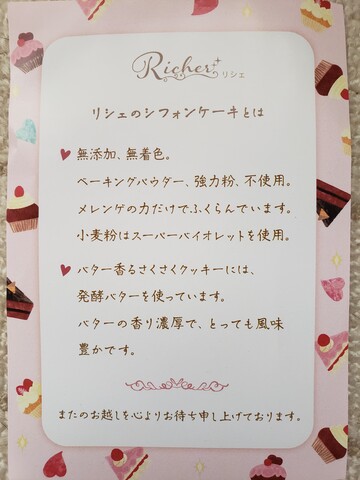 Richer
リシェ
リシェのシフォンケーキとは
無添加、無着色。
ベーキングパウダー、強力粉、不使用。
メレンゲの力だけでふくらんでいます。
小麦粉はスーパーバイオレットを使用。
バター香るさくさくクッキーには、
発酵バターを使っています。
バターの香り濃厚で、とっても風味
豊かです。
またのお越しを心よりお待ち申し上げております。